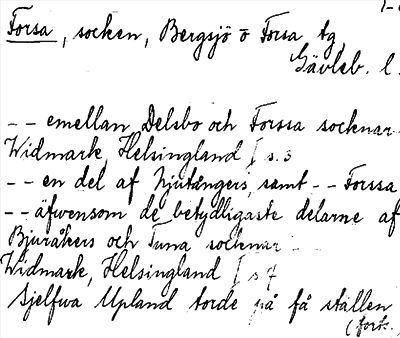 Forsa, socken, Bergsjö o Forsa tg,
Gävleb. l.
-- emellan Delsbo och Forssa socknar
Widmark, Helsingland I s. 3
-- en del af Njutångers, samt -- Forssa
-- äfwensom de betydligaste delarne af
Bjuråkers och Tuna socknar --
Widmark, Helsingland I s. 4
Sjelfwa Upland torde på få ställen
(forts.